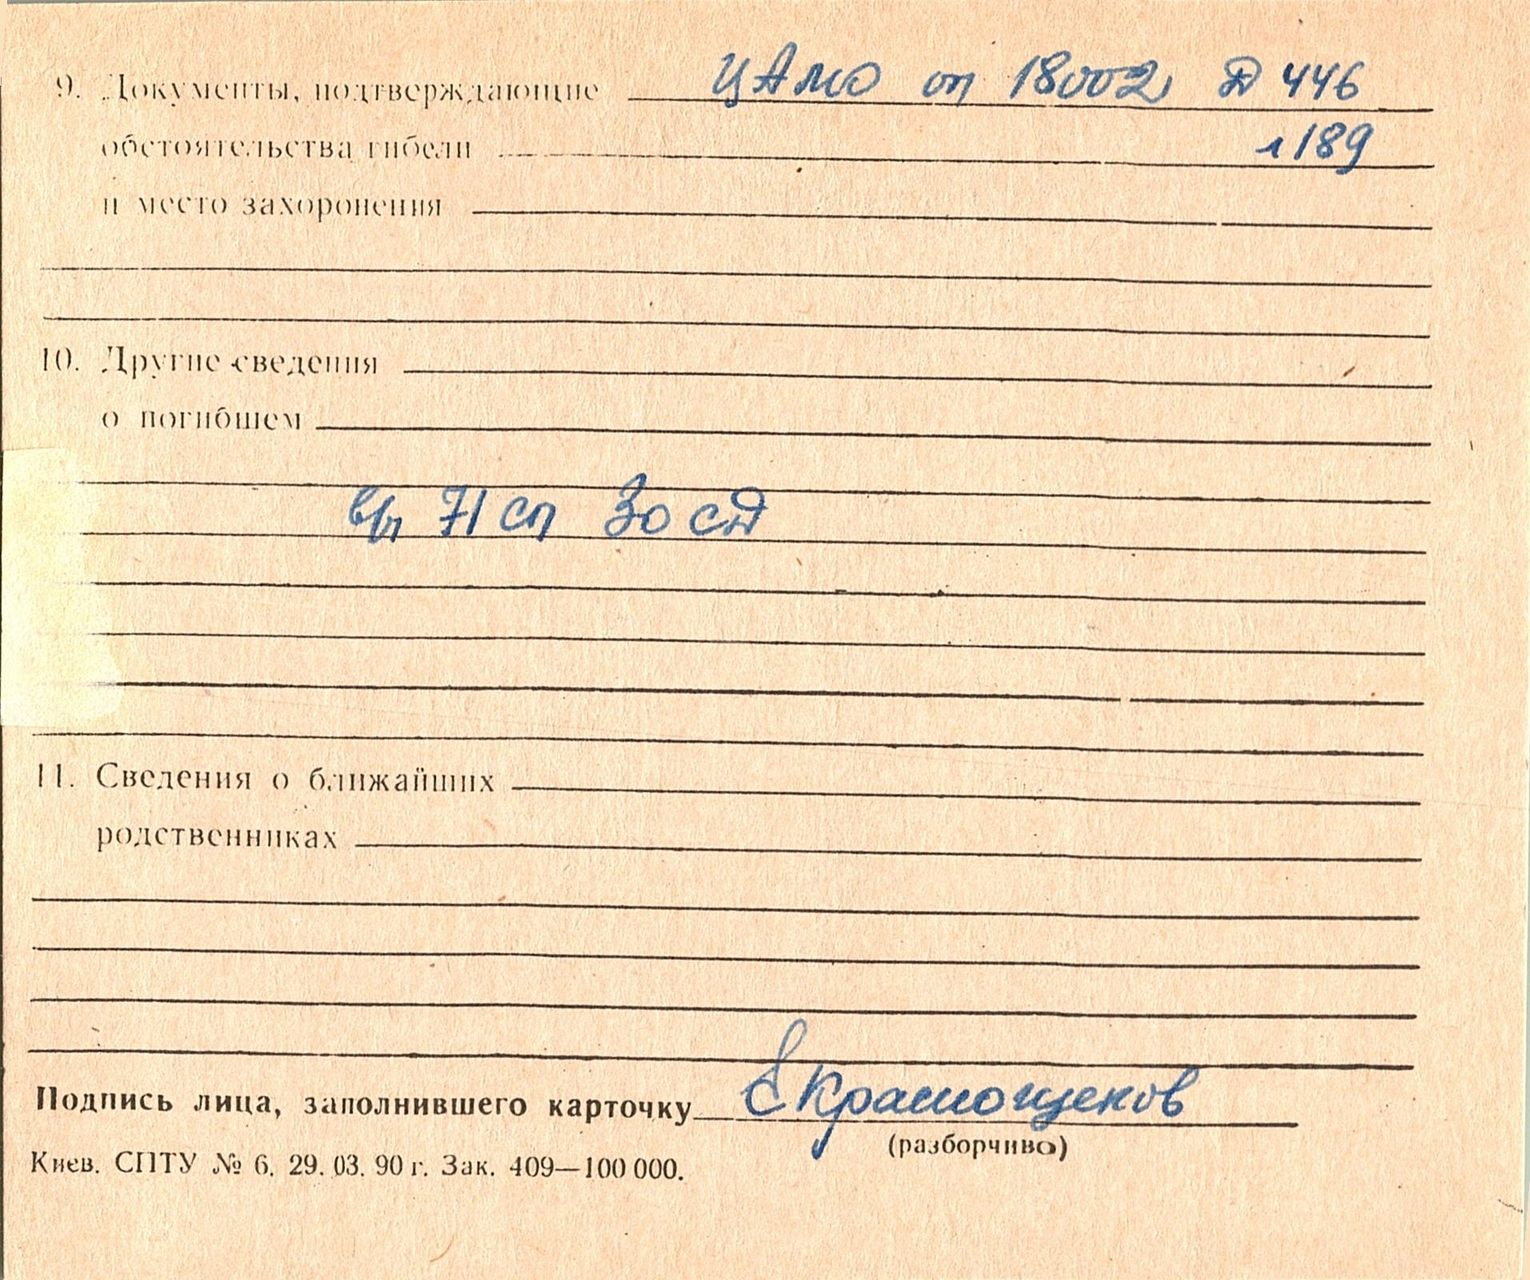 9. Документы, подтверждающие ЦАМО оп 18002 Д 446
обстоятельства гибели л 189
и место захоронения
10. Другие сведения
о погибшем
в/ч 71 сп 30 сд
11. Сведения о ближайших
родственниках
Подпись лица, заполнившего карточку Е Крамощеков
(разборчиво)
Киев. СПТУ № 6. 29. 03. 90 г. Зак. 409—100 000.